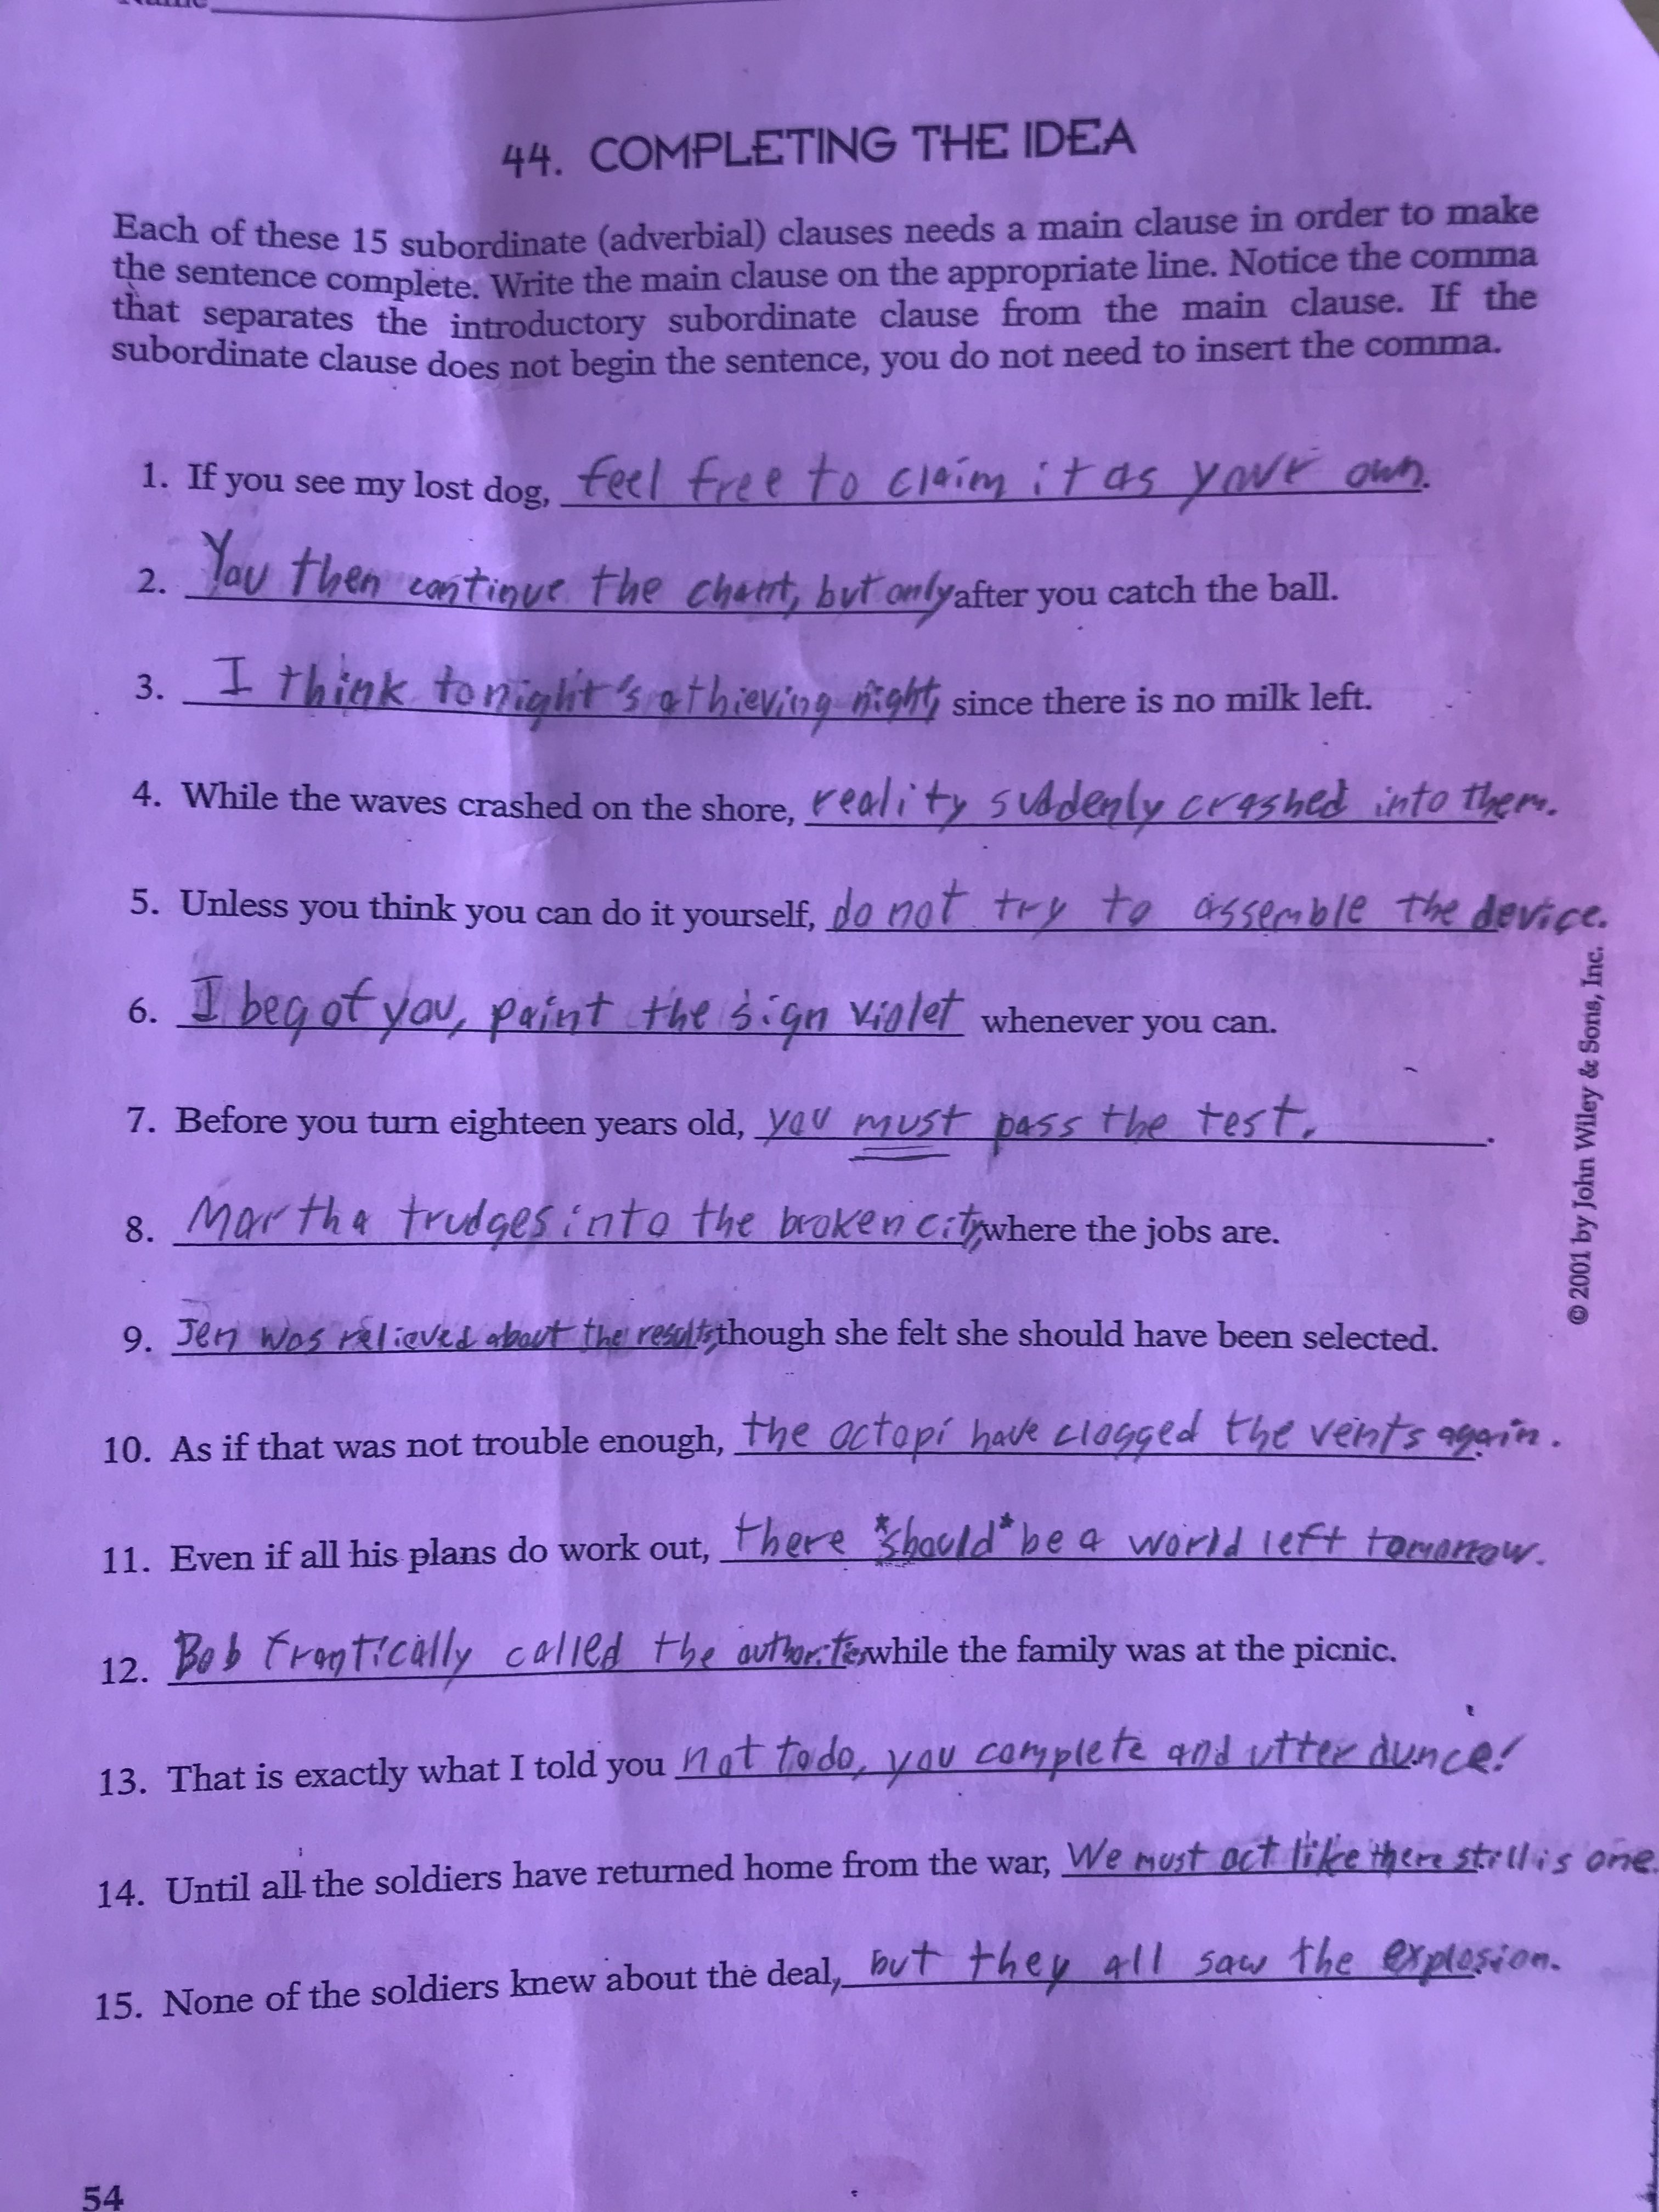 44. COMPLETING THE IDEA
Each of these 15 subordinate (adverbial) clauses needs a main clause in order to make
the sentence complete. Write the main clause on the appropriate line. Notice the comma
that separates the introductory subordinate clause from the main clause. If the
subordinate clause does not begin the sentence, you do not need to insert the comma.
1. If you see my lost dog, feel free to claim it as your own.
2. You then continue the chant, but only after you catch the ball.
3. I think tonight's a thieving night, since there is no milk left.
4. While the waves crashed on the shore, reality suddenly crashed into them.
5. Unless you think you can do it yourself, do not try to assemble the device.
6. I beg of you, paint the sign violet whenever you can.
7. Before you turn eighteen years old, you must pass the test.
8. Martha trudges into the broken city, where the jobs are.
9. Jen was relieved about the results, though she felt she should have been selected.
10. As if that was not trouble enough, the octopi have clogged the vents again.
11. Even if all his plans do work out, there *should* be a world left tomorrow.
12. Bob frantically called the authorities while the family was at the picnic.
13. That is exactly what I told you not to do, you complete and utter dunce!
14. Until all the soldiers have returned home from the war, We must act like there still is one.
15. None of the soldiers knew about the deal, but they all saw the explosion.
54
© 2001 by John Wiley & Sons, Inc.